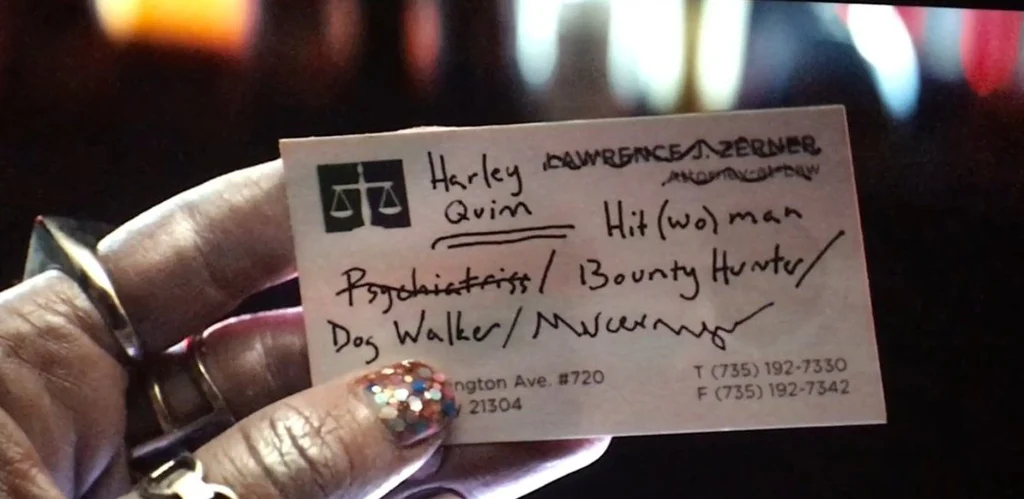 Harley LAWRENCE J. ZERNER
ATTORNEY-AT-LAW
Quinn Hit(wo)man
Psychiatrist / Bounty Hunter/
Dog Walker/ Mercenary
ngton Ave. #720 T (735) 192-7330
21304 F (735) 192-7342